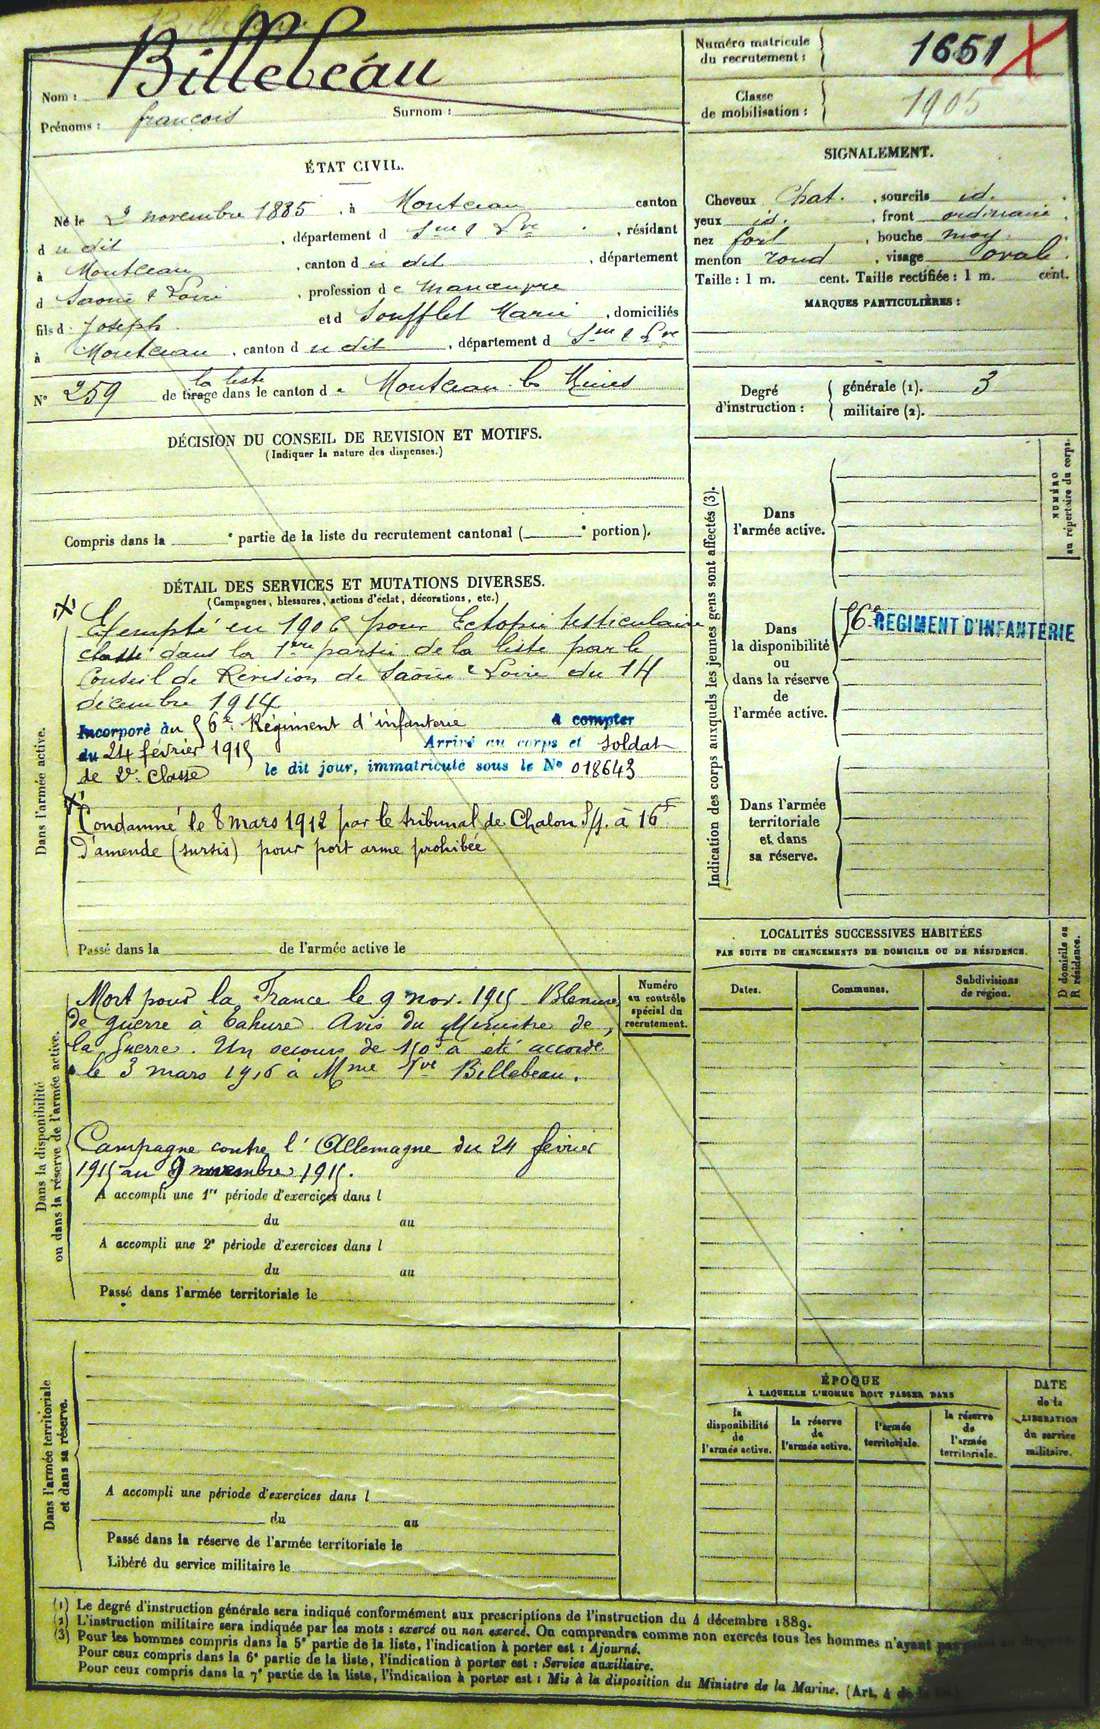 Nom : Billebeau
Prénoms : françois Surnom :
Numéro matricule du recrutement : 1651 X
Classe de mobilisation : 1905
ÉTAT CIVIL.
Né le 2 novembre 1885, à Montceau canton
d u dit, département d Sne & Lre, résidant
à Montceau, canton d u dit, département
d Saône & Loire, profession d e manœuvre
fils d Joseph et d Soufflet Marie, domiciliés
à Montceau, canton d u dit, département d Sne & Lre
N° 259 de tirage la liste dans le canton d e Montceau les Mines
SIGNALEMENT.
Cheveux Chat., sourcils id.,
yeux id., front ordinaire,
nez fort, bouche moy
menton rond, visage ovale.
Taille : 1 m. cent. Taille rectifiée : 1 m. cent.
MARQUES PARTICULIÈRES :
Degré d'instruction : générale (1). 3
militaire (2).
DÉCISION DU CONSEIL DE REVISION ET MOTIFS.
(Indiquer la nature des dispenses.)
Compris dans la e partie de la liste du recrutement cantonal ( e portion).
DÉTAIL DES SERVICES ET MUTATIONS DIVERSES.
(Campagnes, blessures, actions d'éclat, décorations, etc.)
Dans l'armée active.
Exempté en 1906 pour Ectopie testiculaire
classé dans la 1ère partie de la liste par le
Conseil de Révision de Saône & Loire du 14
décembre 1914
Incorporé au 56e Régiment d'infanterie à compter
du 24 février 1915 Arrivé au corps et soldat
de 2e classe le dit jour, immatriculé sous le No 018643
Condamné le 8 mars 1912 par le tribunal de Chalon s/s. à 16F
d'amende (sursis) pour port arme prohibée
Passé dans la de l'armée active le
Dans la disponibilité
ou dans la réserve de l'armée active.
Mort pour la France le 9 nov. 1915 Blessures
de guerre à Tahure. Avis du Ministre de
la Guerre. Un secours de 150f a été accordé
le 3 mars 1916 à Mme Vve Billebeau.
Campagne contre l'Allemagne du 24 février
1915 au 9 novembre 1915.
A accompli une 1re période d'exercices dans l
du au
A accompli une 2e période d'exercices dans l
du au
Passé dans l'armée territoriale le
Numéro
au contrôle
spécial du
recrutement.
Dans l'armée territoriale
et dans sa réserve.
A accompli une période d'exercices dans l
du au
Passé dans la réserve de l'armée territoriale le
Libéré du service militaire le
Indication des corps auxquels les jeunes gens sont affectés (3).
NUMÉRO
au répertoire du corps.
Dans
l'armée active.
Dans
la disponibilité
ou
dans la réserve
de
l'armée active.
56e REGIMENT D'INFANTERIE
Dans l'armée
territoriale
et dans
sa réserve.
LOCALITÉS SUCCESSIVES HABITÉES
PAR SUITE DE CHANGEMENTS DE DOMICILE OU DE RÉSIDENCE.
Dates. Communes. Subdivisions de région. D domicile ou R résidence.
ÉPOQUE
À LAQUELLE L'HOMME DOIT PASSER DANS
la disponibilité de l'armée active.
la réserve de l'armée active.
l'armée territoriale.
la réserve de l'armée territoriale.
DATE
de la
LIBÉRATION
du service
militaire.
(1) Le degré d'instruction générale sera indiqué conformément aux prescriptions de l'instruction du 4 décembre 1889.
(2) L'instruction militaire sera indiquée par les mots : exercé ou non exercé. On comprendra comme non exercés tous les hommes n'ayant pas
(3) Pour les hommes compris dans la 5e partie de la liste, l'indication à porter est : Ajourné.
Pour ceux compris dans la 6e partie de la liste, l'indication à porter est : Service auxiliaire.
Pour ceux compris dans la 7e partie de la liste, l'indication à porter est : Mis à la disposition du Ministre de la Marine. (Art. 4 de la loi)